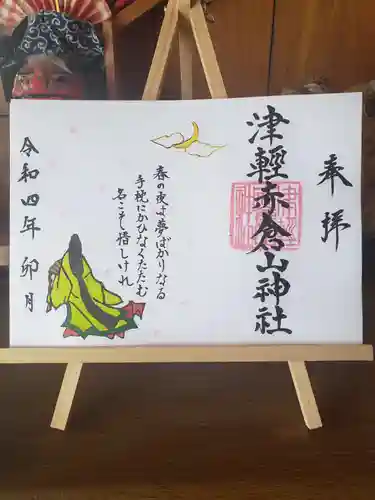 奉拝
津軽赤倉山神社
春の夜は夢ばかりなる
手枕にかひなくたたむ
名こそ惜しけれ
令和四年 卯月